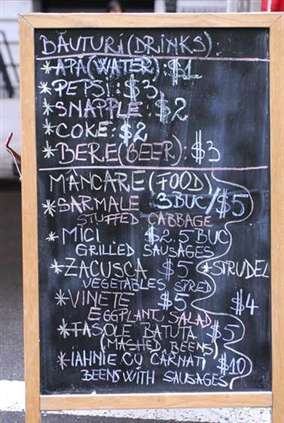 BĂUTURI(DRINKS):
*APĂ(WATER):$1
*PEPSI:$3
*SNAPPLE:$2
*COKE:$2
*BERE(BEER):$3
MANCARE(FOOD)
*SARMALE 3BUC/$5
STUFFED CABBAGE
*MICI $2.5 BUC
GRILLED SAUSAGES
*ZACUSCA $5
*STRUDEL
$4
VEGETABLES SPRED
*VINETE $5
EGGPLANT SALAD
*FASOLE BATUTA $5
(MASHED BEENS)
*IAHNIE CU CARNATI $10
BEENS WITH SAUSAGES